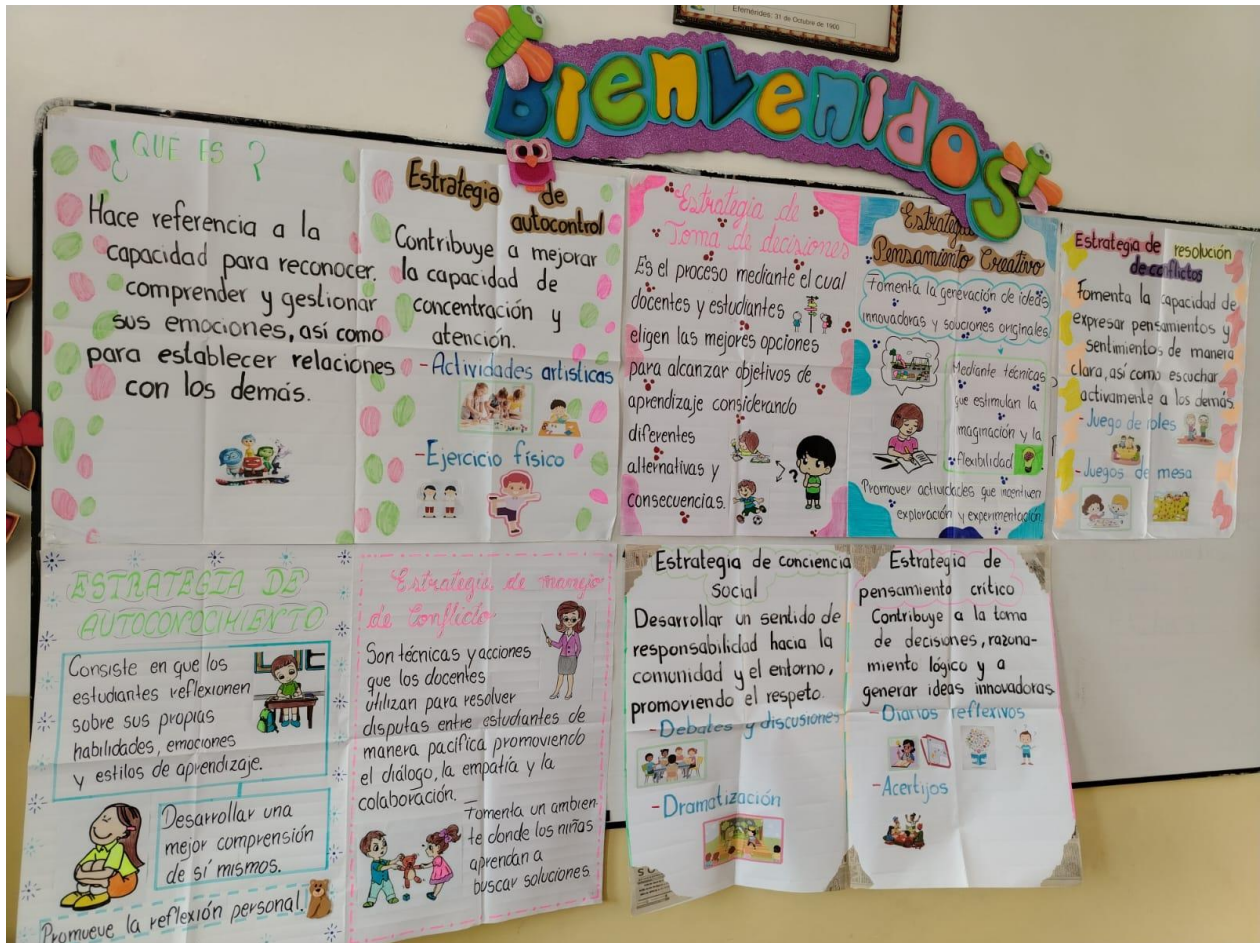 Efemérides: 31 de Octubre de 1900
Bienvenidos
¿QUE ES?
Hace referencia a la
capacidad para reconocer,
comprender y gestionar
sus emociones, así como
para establecer relaciones
con los demás.
Estrategia de
autocontrol
Contribuye a mejorar
la capacidad de
concentración y
atención.
-Actividades artisticas
-Ejercicio físico
Estrategia de
Toma de decisiones
Es el proceso mediante el cual
docentes y estudiantes
eligen las mejores opciones
para alcanzar objetivos de
aprendizaje considerando
diferentes
alternativas y
consecuencias.
Estrategia
Pensamiento Creativo
Fomenta la generación de ideas
innovadoras y soluciones originales
Mediante técnicas
que estimulan la
imaginación y la
flexibilidad
Promover actividades que incentiven
exploración y experimentación.
Estrategia de resolución
de conflictos
Fomenta la capacidad de
expresar pensamientos y
sentimientos de manera
clara, así como escuchar
activamente a los demás
-Juego de roles
-Juegos de mesa
ESTRATEGIA DE
AUTOCONOCIMIENTO
Consiste en que los
estudiantes reflexionen
sobre sus propias
habilidades, emociones
y estilos de aprendizaje.
Desarrollar una
mejor comprensión
de sí mismos.
Promueve la reflexión personal.
Estrategia de manejo
de Conflicto
Son técnicas y acciones
que los docentes
utilizan para resolver
disputas entre estudiantes de
manera pacífica promoviendo
el diálogo, la empatía y la
colaboración.
Fomenta un ambien-
te donde los niñas
aprendan a
buscar soluciones.
Estrategia de conciencia
Social
Desarrollar un sentido de
responsabilidad hacia la
comunidad y el entorno,
promoviendo el respeto.
-Debates y discusiones
-Dramatización
Estrategia de
pensamiento crítico
Contribuye a la toma
de decisiones, razona-
miento lógico y a
generar ideas innovadoras
-Diarios reflexivos
-Acertijos